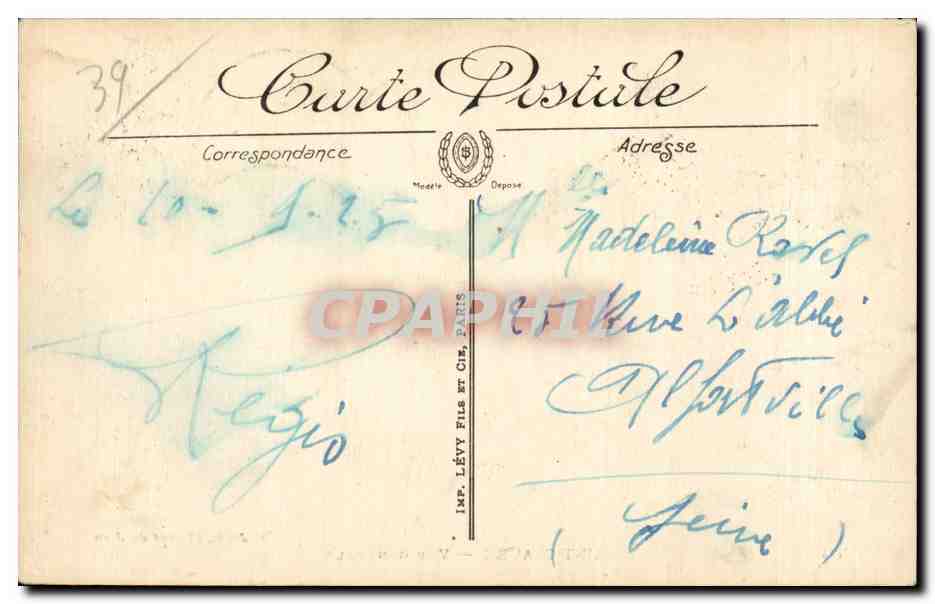 39/
Carte Postale
Correspondance
Adresse
Modèle Déposé
Le 10-1-25
Mlle
Madeleine Ravel
25 Rue L'abbé
Alfortville
(Seine)
Régis
CPAPHIL
IMP. LÉVY FILS ET CIE, PARIS